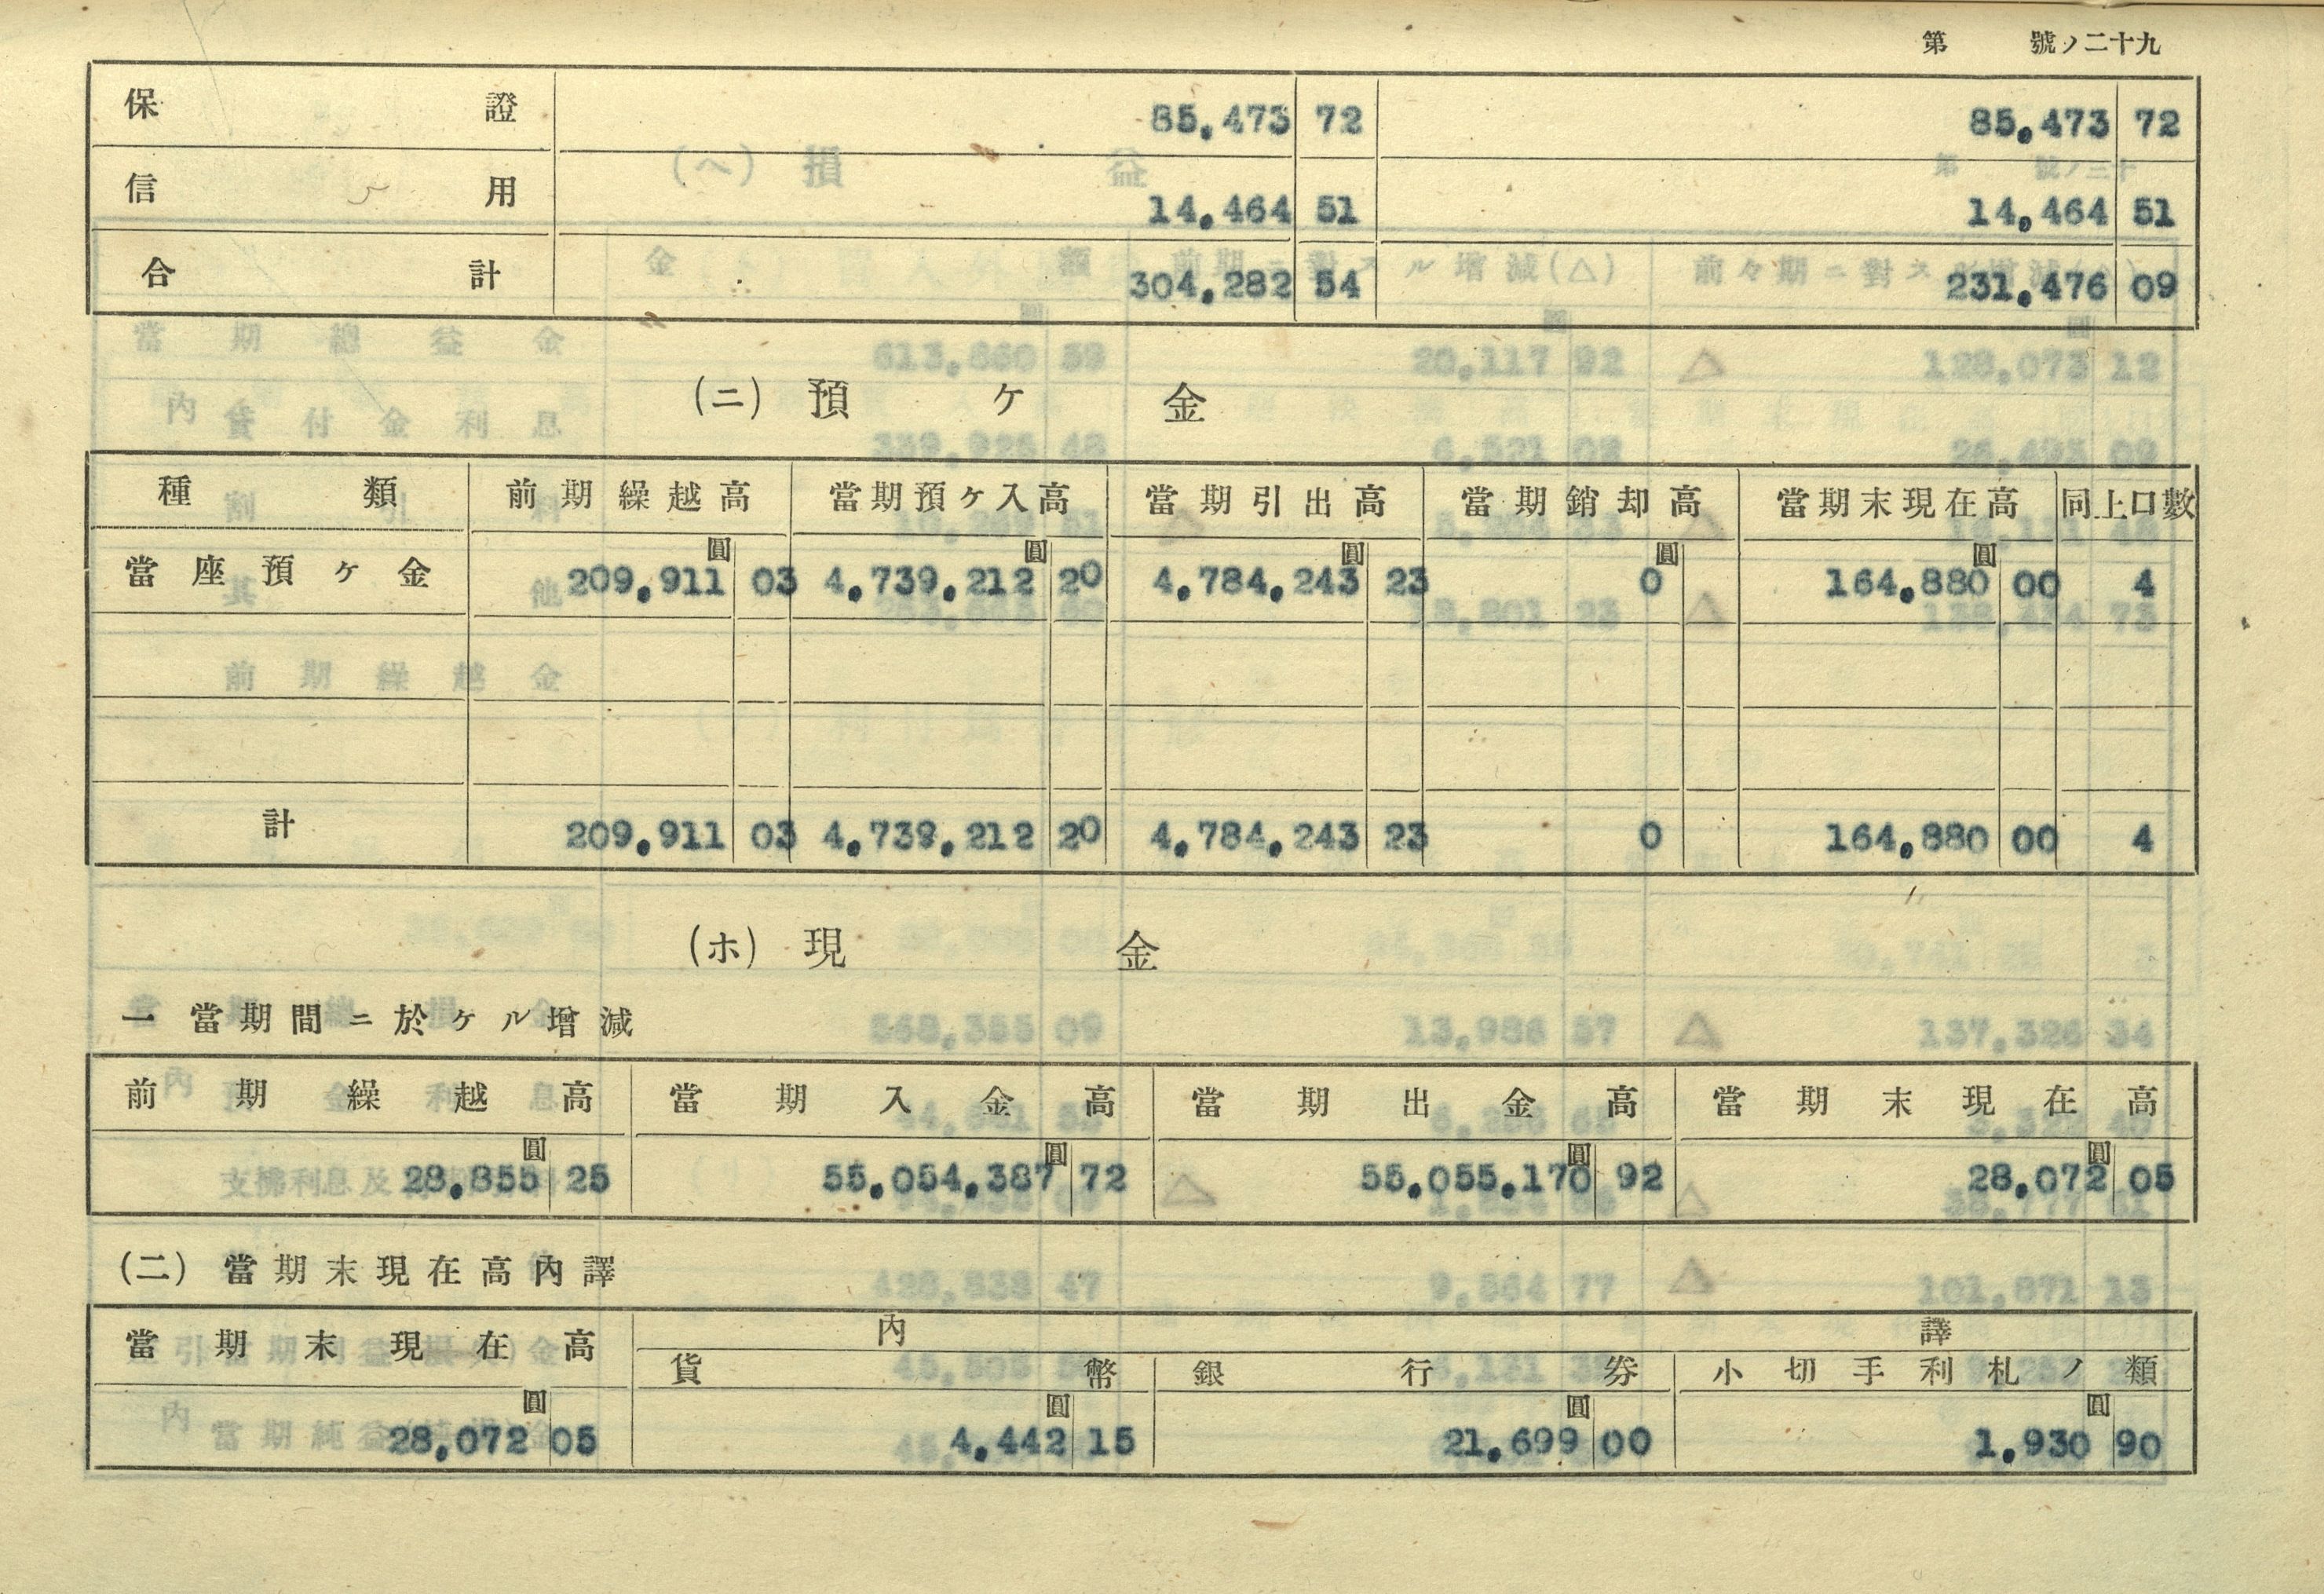 第 號ノ二十九
保證 85,473 72 85,473 72
信用 14,464 51 14,464 51
合計 304,282 54 231,476 09
(ニ) 預ケ金
種類 前期繰越高 當期預ケ入高 當期引出高 當期銷却高 當期末現在高 同上口數
圓 圓 圓 圓 圓
當座預ケ金 209,911 03 4,739,212 20 4,784,243 23 0 164,880 00 4
計 209,911 03 4,739,212 20 4,784,243 23 0 164,880 00 4
(ホ) 現金
一 當期間ニ於ケル增減
前期繰越高 當期入金高 當期出金高 當期末現在高
圓 圓 圓 圓
28,855 25 55,054,387 72 55,055,170 92 28,072 05
(二) 當期末現在高內譯
當期末現在高 內譯
貨幣 銀行券 小切手利札ノ類
圓 圓 圓 圓
28,072 05 4,442 15 21,699 00 1,930 90